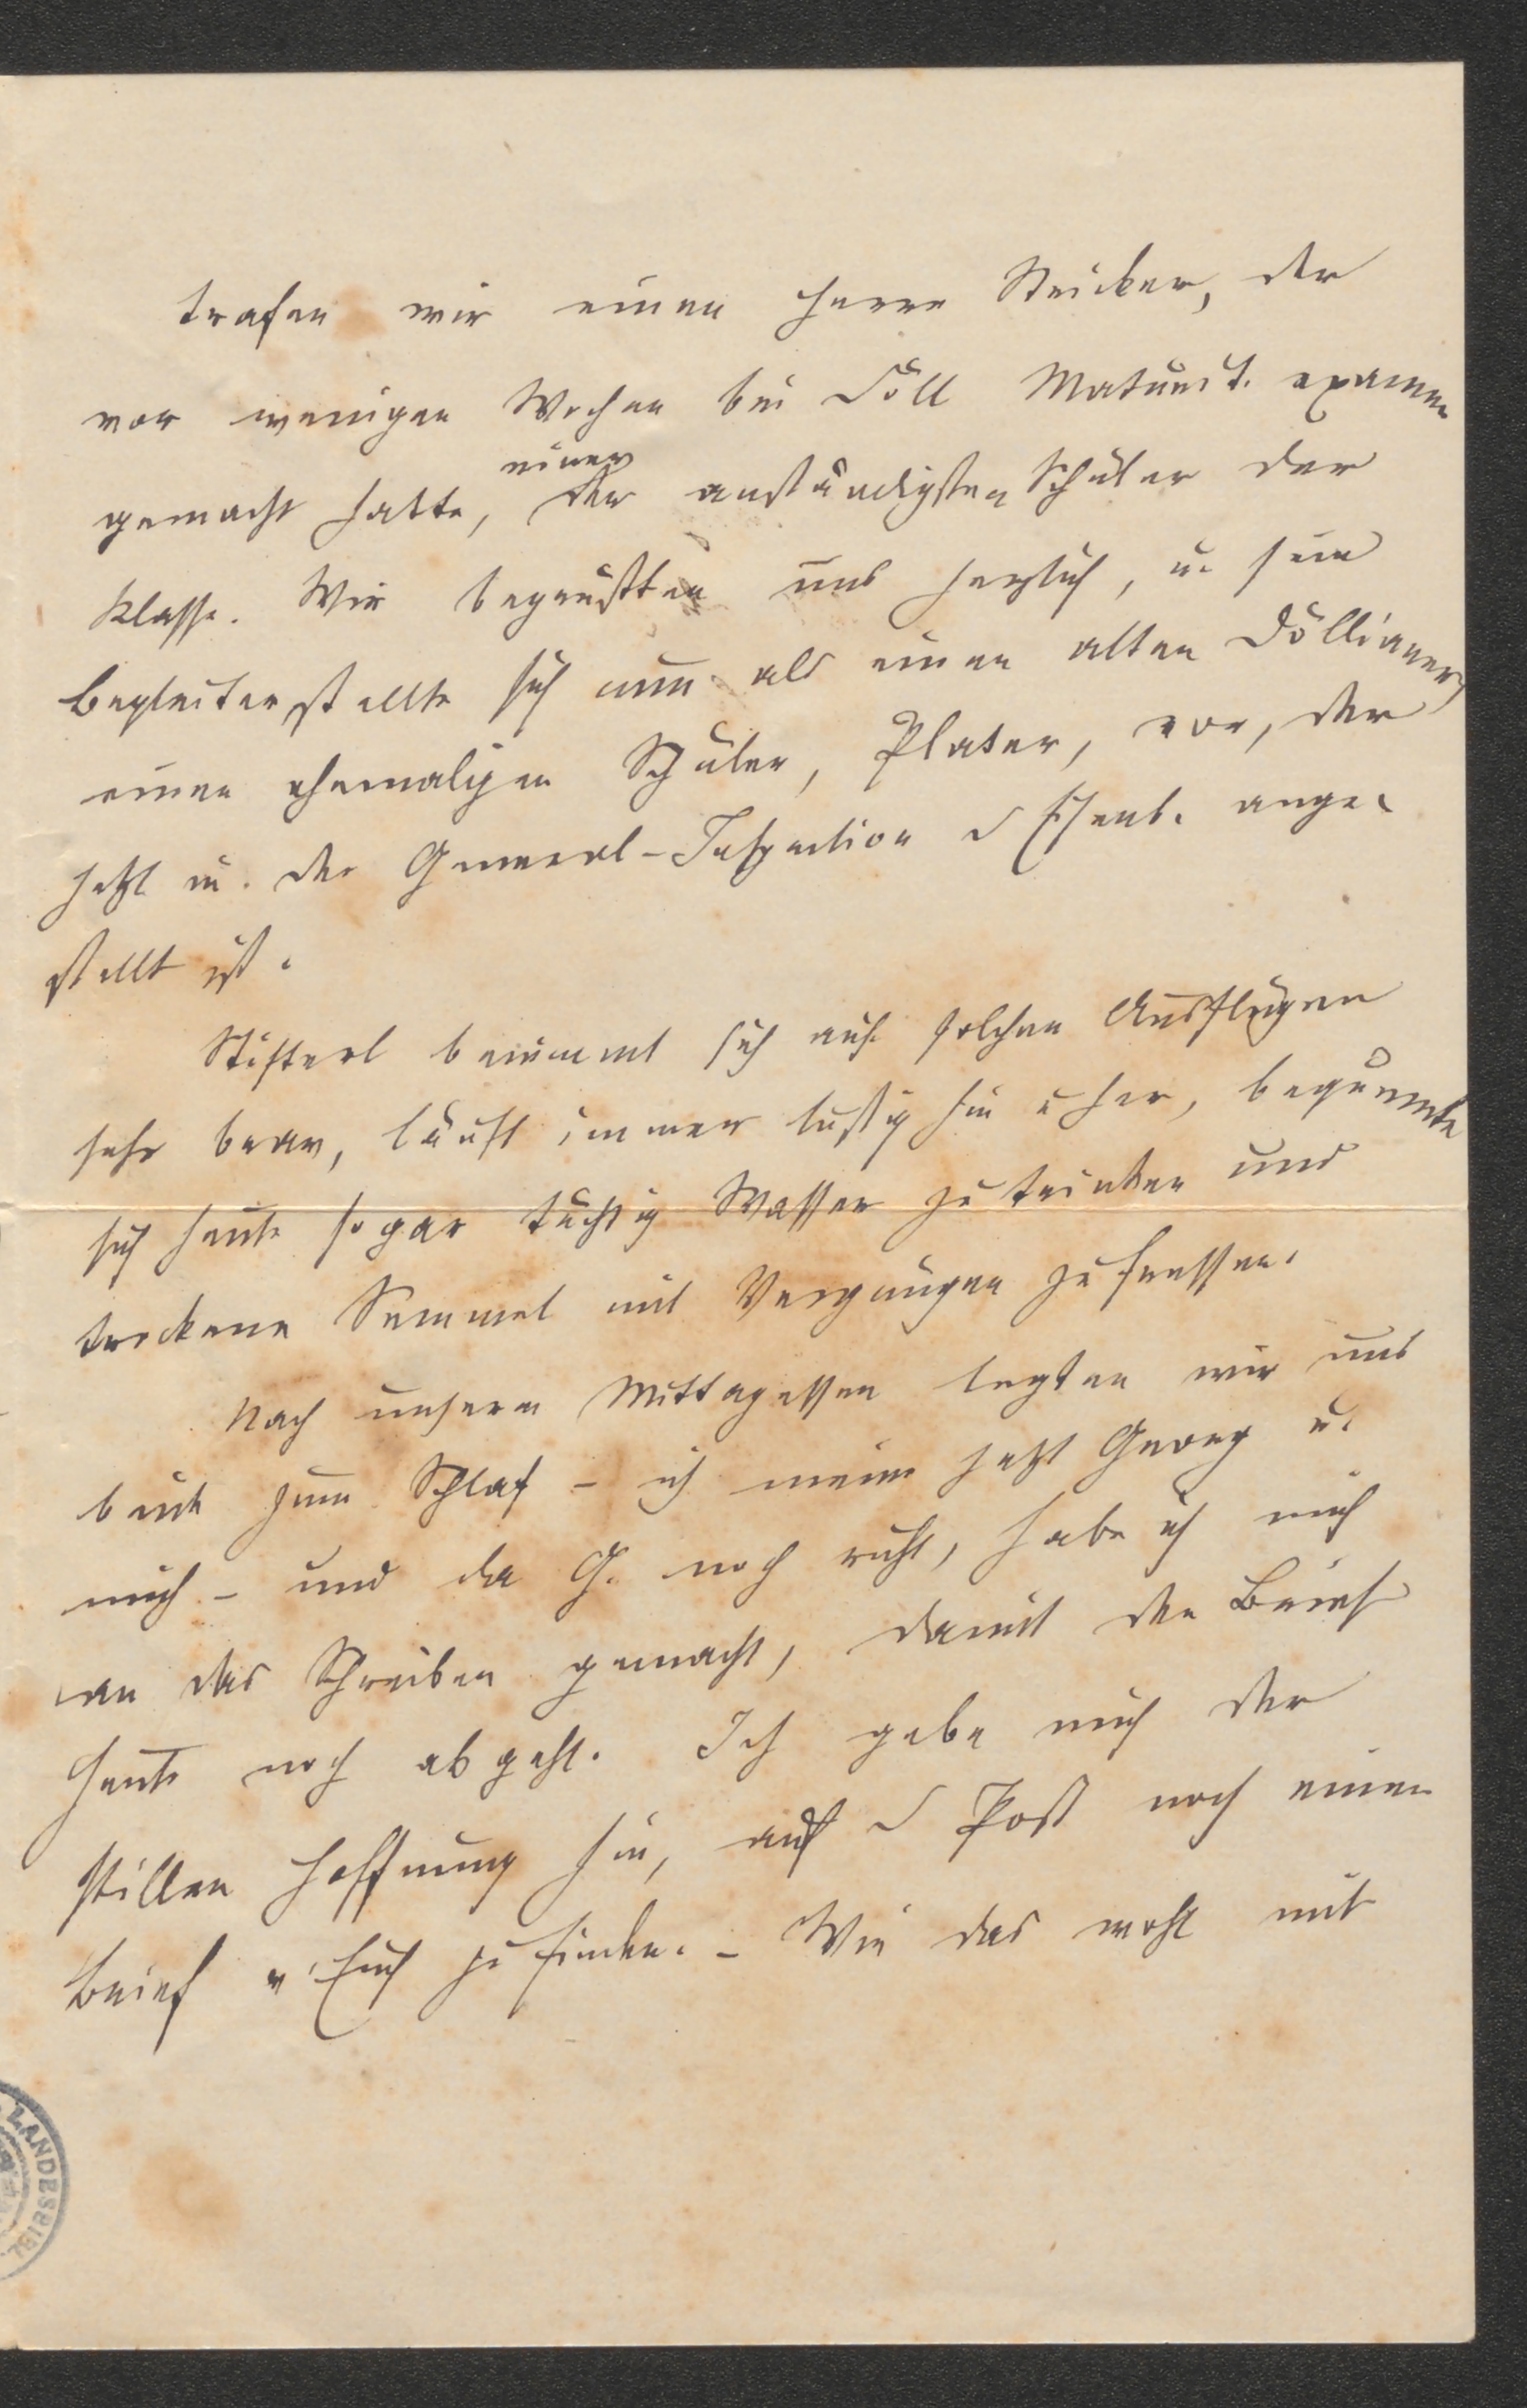 trafen wir einen Herrn Stricker, der
vor wenigen Wochen bei Döll Maturit. examen
einer
gemacht hatte, der anständigsten Schüler der
Klasse. Wir begrüßten uns herzlich, u. sein
Begleiter stellte sich nun als einen alten Döllianer,
einen ehemaligen Schüler, Plater, vor, der
jetzt in der General-Inspection d Eisenb. ange-
stellt ist.
Stifterl benimmt sich auf solchen Ausflügen
sehr brav, läuft immer lustig hin u her, bequemte
sich heute sogar tüchtig Wasser zu trinken und
trockene Semmel mit Vergnügen zu fressen.
Nach unserm Mittagessen legten wir uns
beide zum Schlaf – ich meine jetzt Georg u.
mich – und da G. noch ruht, habe ich mich
an das Schreiben gemacht, damit der Brief
heute noch abgeht. Ich gebe mich der
stillen Hoffnung hin, auf d Post noch einen
Brief v. Euch zu finden. – Wie das wohl mit
LANDESBIBL